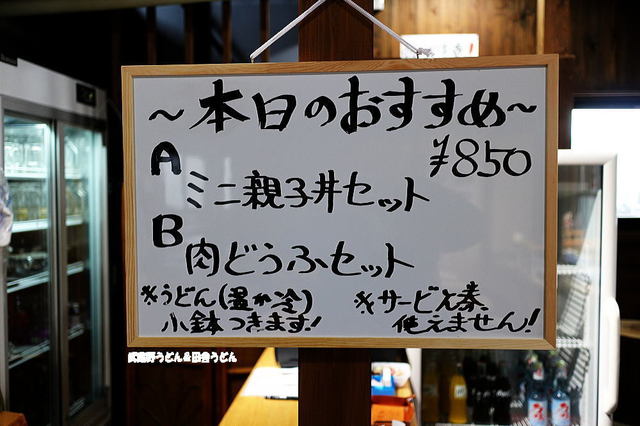 ～本日のおすすめ～
¥850
A
ミニ親子丼セット
B
肉どうふセット
*うどん(温か冷)
小鉢つきます!
*サービス券
使えません!
武蔵野うどん&田舎うどん